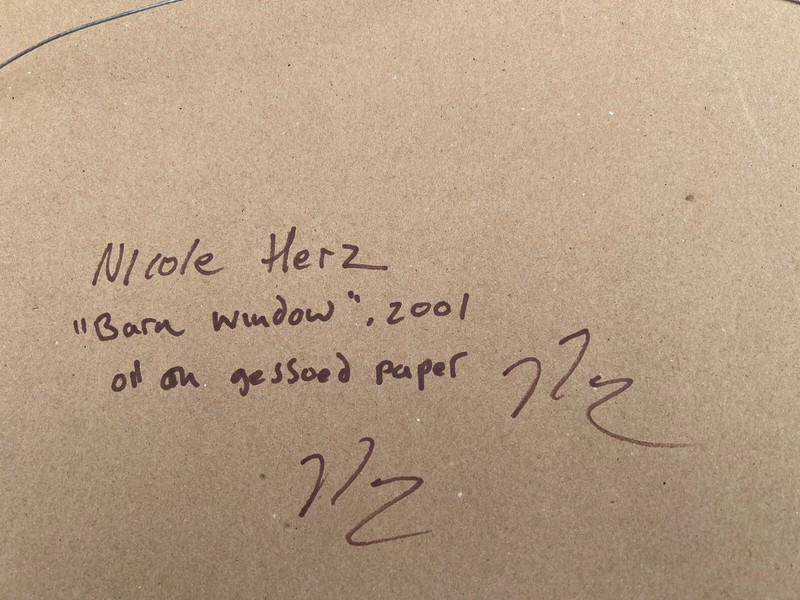 Nicole Herz
"Barn window", 2001
oil on gessoed paper